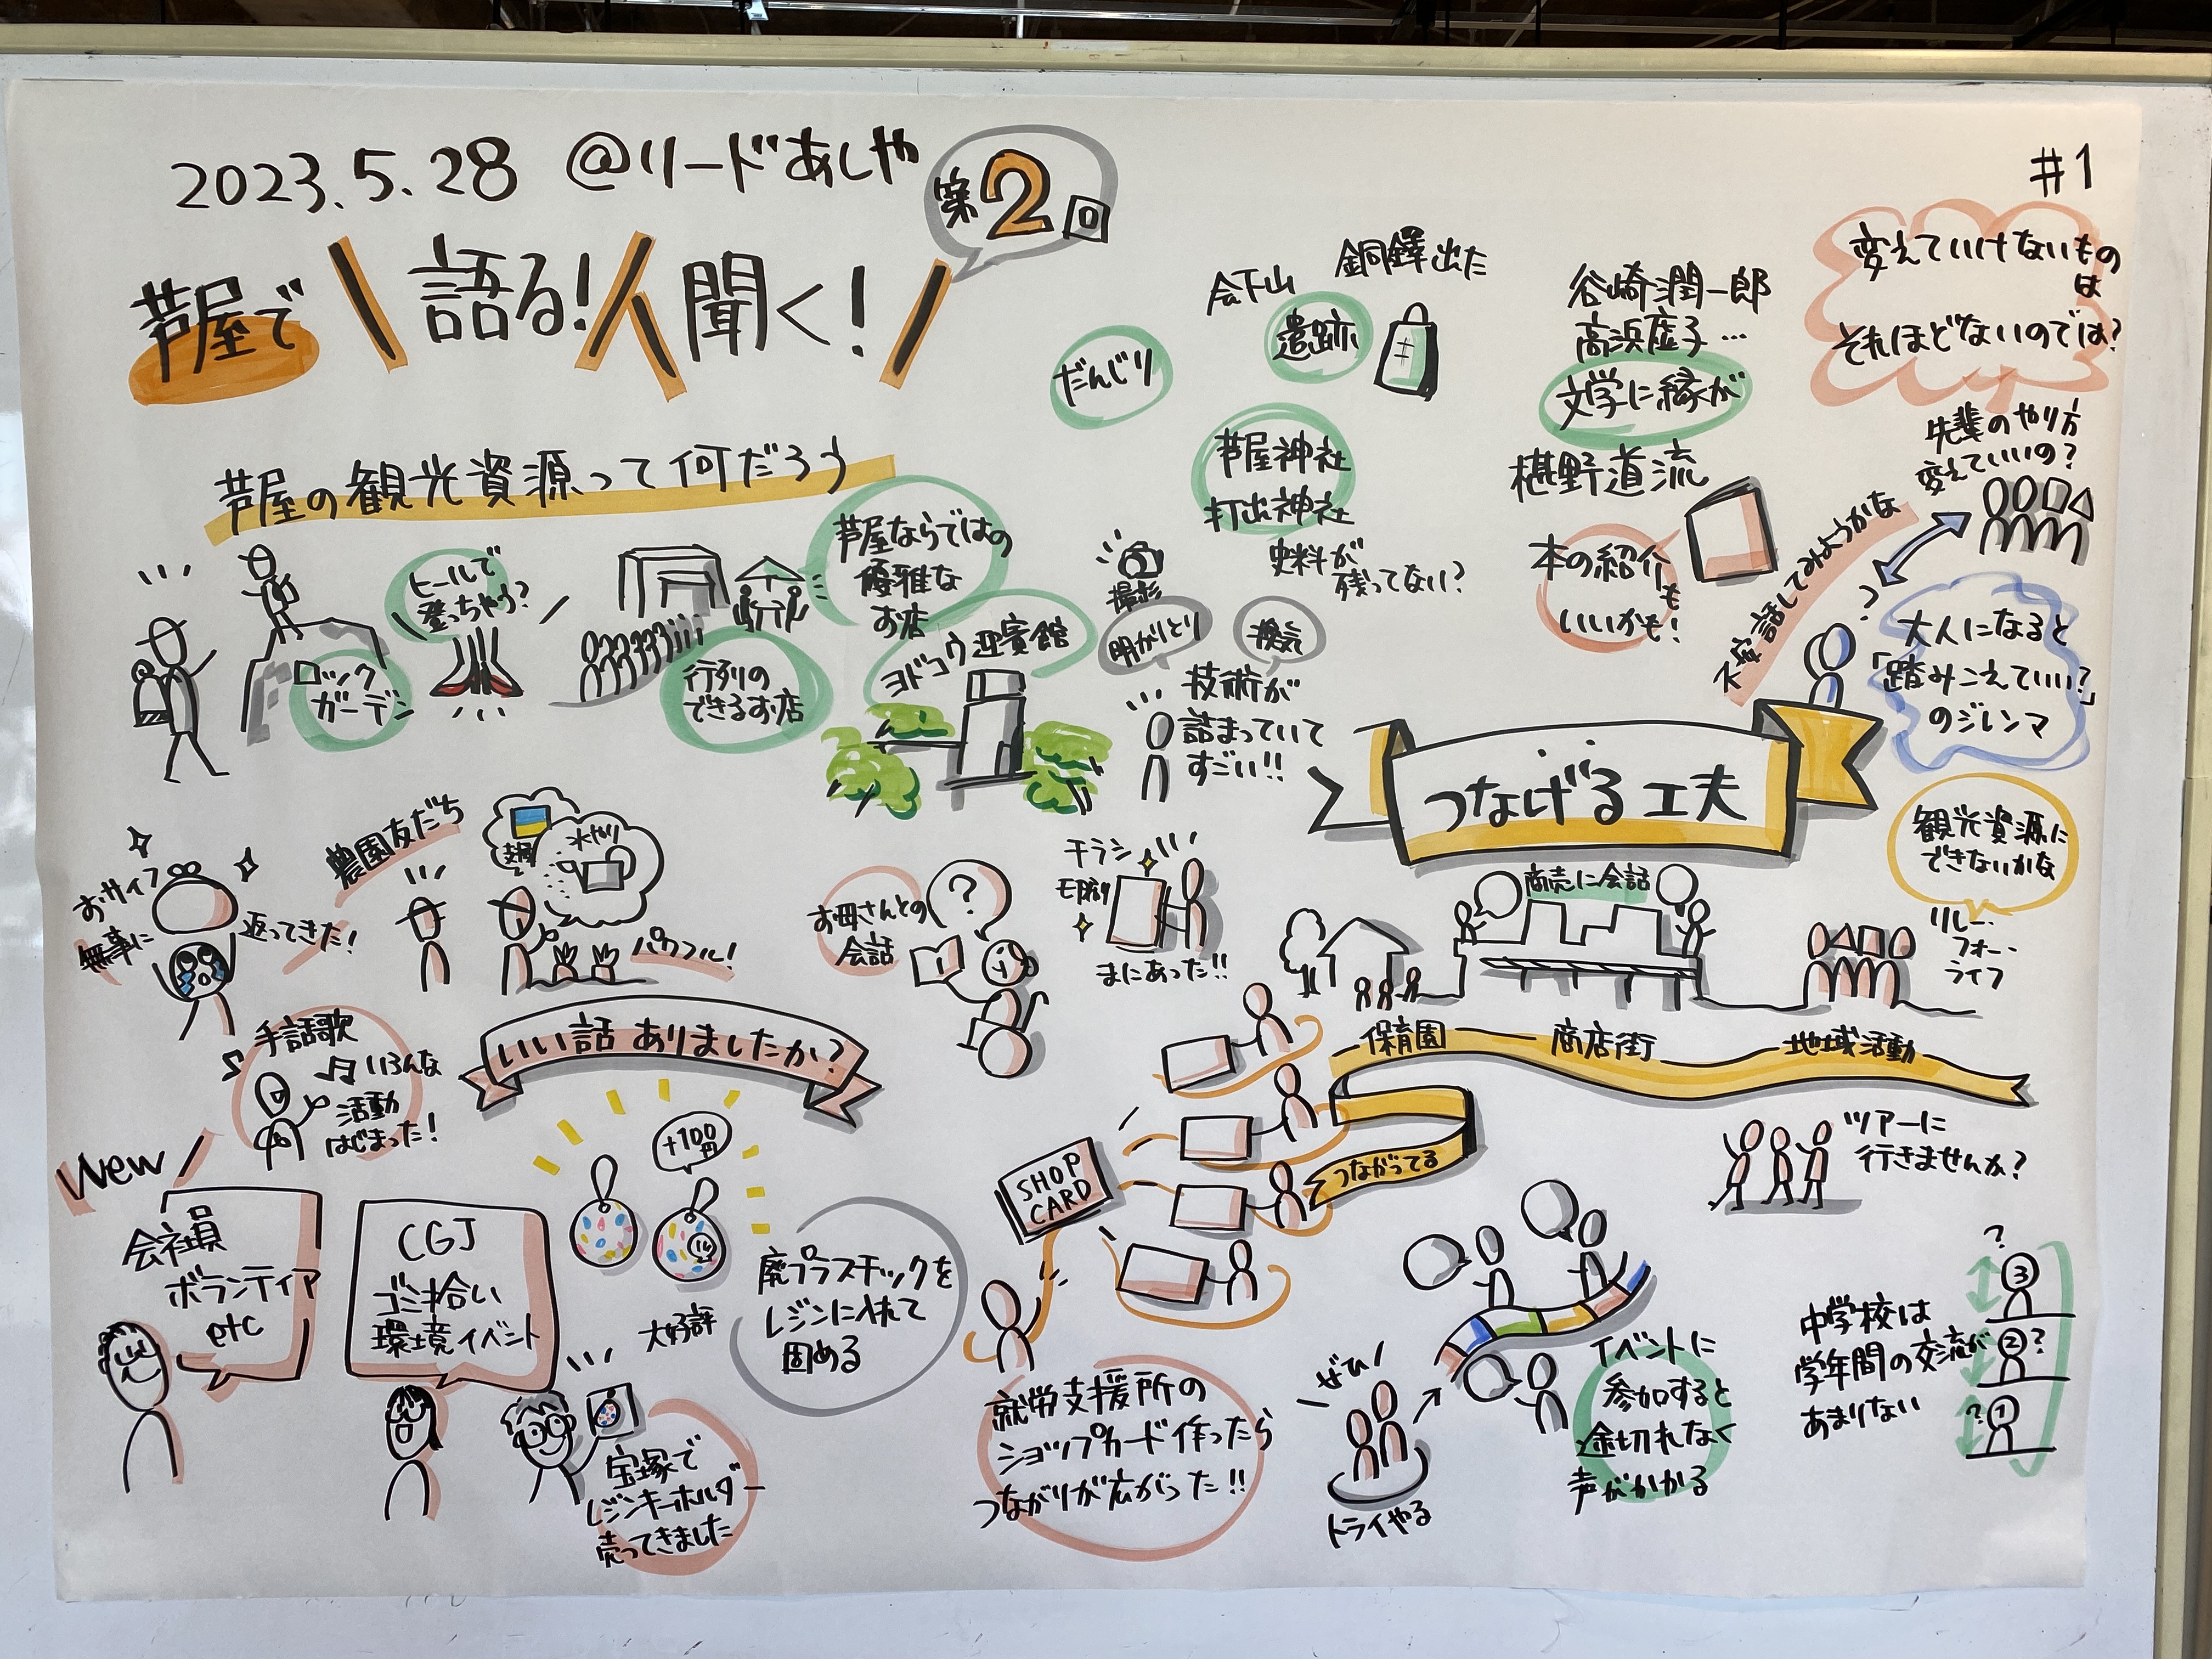 2023.5.28 @リードあしや
第2回
#1
芦屋で
語る!
聞く!
芦屋の観光資源って何だろう
ヒールで
登っちゃう?
ロック
ガーデン
行列の
できるお店
芦屋ならではの
優雅な
お店
ヨドコウ迎賓館
だんじり
会下山
遺跡
銅鐸出た
芦屋神社
打出神社
史料が
残ってない?
撮影
明かりとり
換気
技術が
詰まっていて
すごい!!
谷崎潤一郎
高浜虚子…
文学に縁が
椹野道流
本の紹介
も
いいかも!
変えていけないもの
は
それほどないのでは?
先輩のやり方
変えていいの?
話してみようかな
大人になると
「踏みこえていい?」
のジレンマ
つなげる工夫
観光資源に
できないかな
リレー・
フォー・
ライフ
商売に会話
保育園
商店街
地域活動
つながってる
ツアーに
行きませんか?
おサイフ
無事に
返ってきた!
農園友だち
支援
水やり
パワフル!
お母さんとの
会話
?
チラシ
印刷
まにあった!!
いい話 ありましたか?
手話歌
いろんな
活動
はじまった!
New
会社員
ボランティア
etc
CGJ
ゴミ拾い
環境イベント
+100円
大好評
廃プラスチックを
レジンに入れて
固める
宝塚で
レジンキーホルダー
売ってきました
SHOP
CARD
就労支援所の
ショップカード作ったら
つながりが広がった!!
ぜひ!
トライやる
イベントに
参加すると
途切れなく
声がかかる
中学校は
学年間の交流が
あまりない
?
3
2
?
?
1